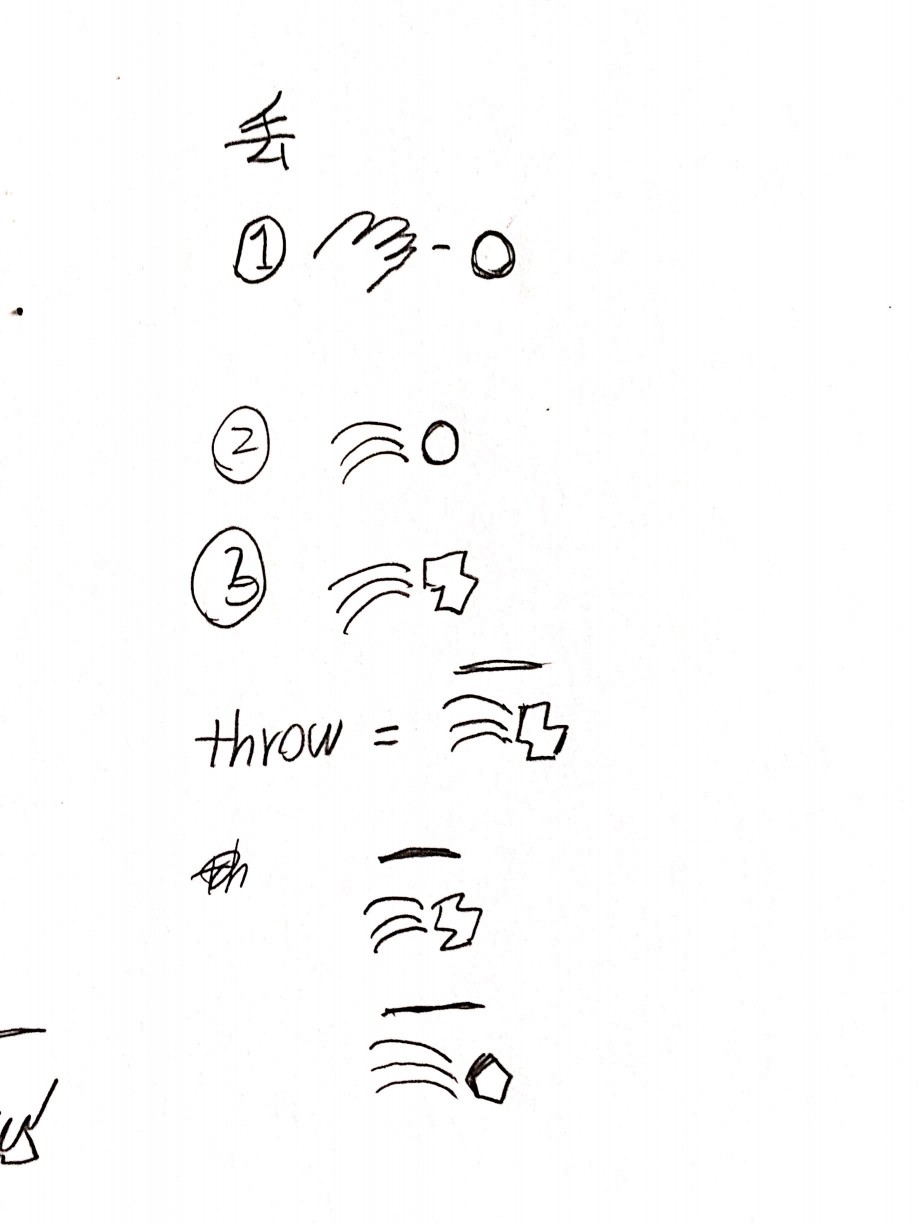 丢
① -
②
③
throw =